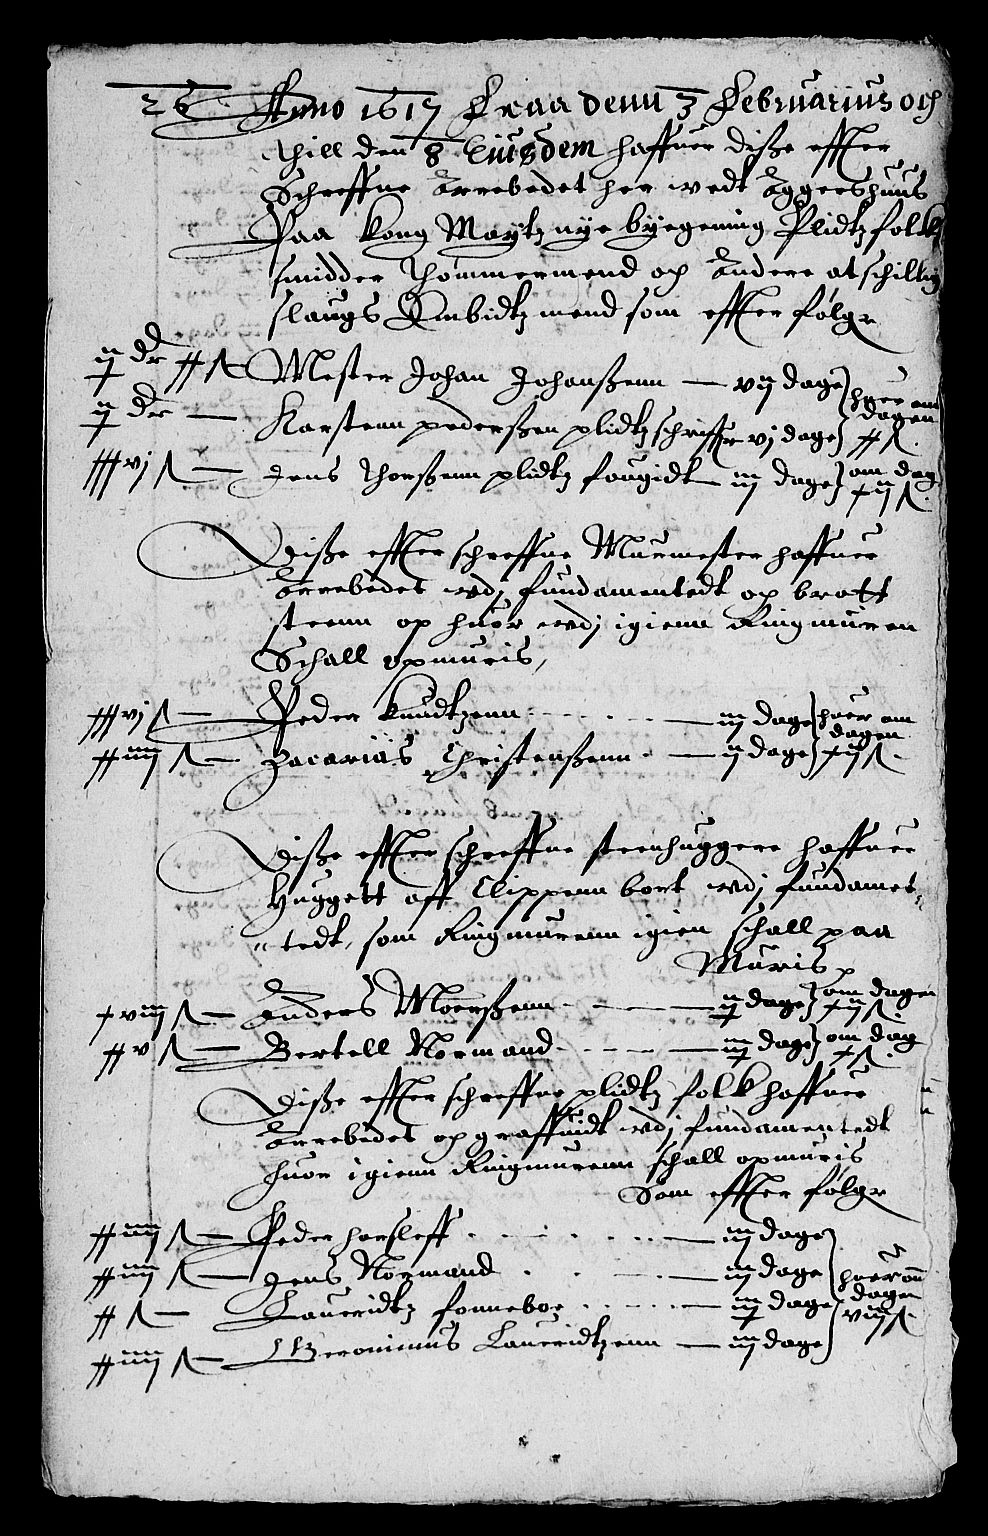 26 Anno 1617 Fraa denn 3 Februarius och
thill den 8 Eiusdem haffuer disse effter
Schreffne Arrebedet her wedt Aggershuus
Paa kong Maytz nye byegening Plidtzfolck
smidder Thømmermend och Andere atschillig
slaugs Embidtzmend som effter følger
ij dr xx s Mester Johan Johanßenn — vij dage } huer om
ij dr — Karstenn pederßen plidtz schriffr vj dage } dagen xx s.
xxxvj s — Jens Thorßenn plidtz fougidt iij dage } om dag xij s.
Disse effter schreffne Murmester haffuer
Arrebedet wdj fundamentedt och brøtt
steenn och huor wdj igienn Ringmuren
Schall opmuris,
xxxvj s — Peder knudtzenn — iij dage } huer om dagen
xxiiij s — Zacarias Christenßenn — ij dage } xij s.
Disse effter schreffne steenhuggere haffuer
Huggett aff Clippenn bort wdj fundamet
tedt, som Ringmurenn igien schall paa
Muris
xviij s — Anders Moerßenn — ij dage } om dagen xij s.
xxv s — Bertell Normand — iij dage } om dag x s.
Disse effter schreffne plidtz folk haffuer
Arrebedet och graffuidt wdj fundamentedt
huor igienn Ringmurenn schall opmuris
Som effter følger
xxiiij s — Peder horsleff — iij dage
xxiiij s — Jens Normand — iij dage } huer om
xx s — Lauridtz fonneboe — iij dage } dagen viij s.
xxiiij s — Jeronimus Lauridtzenn — iij dage